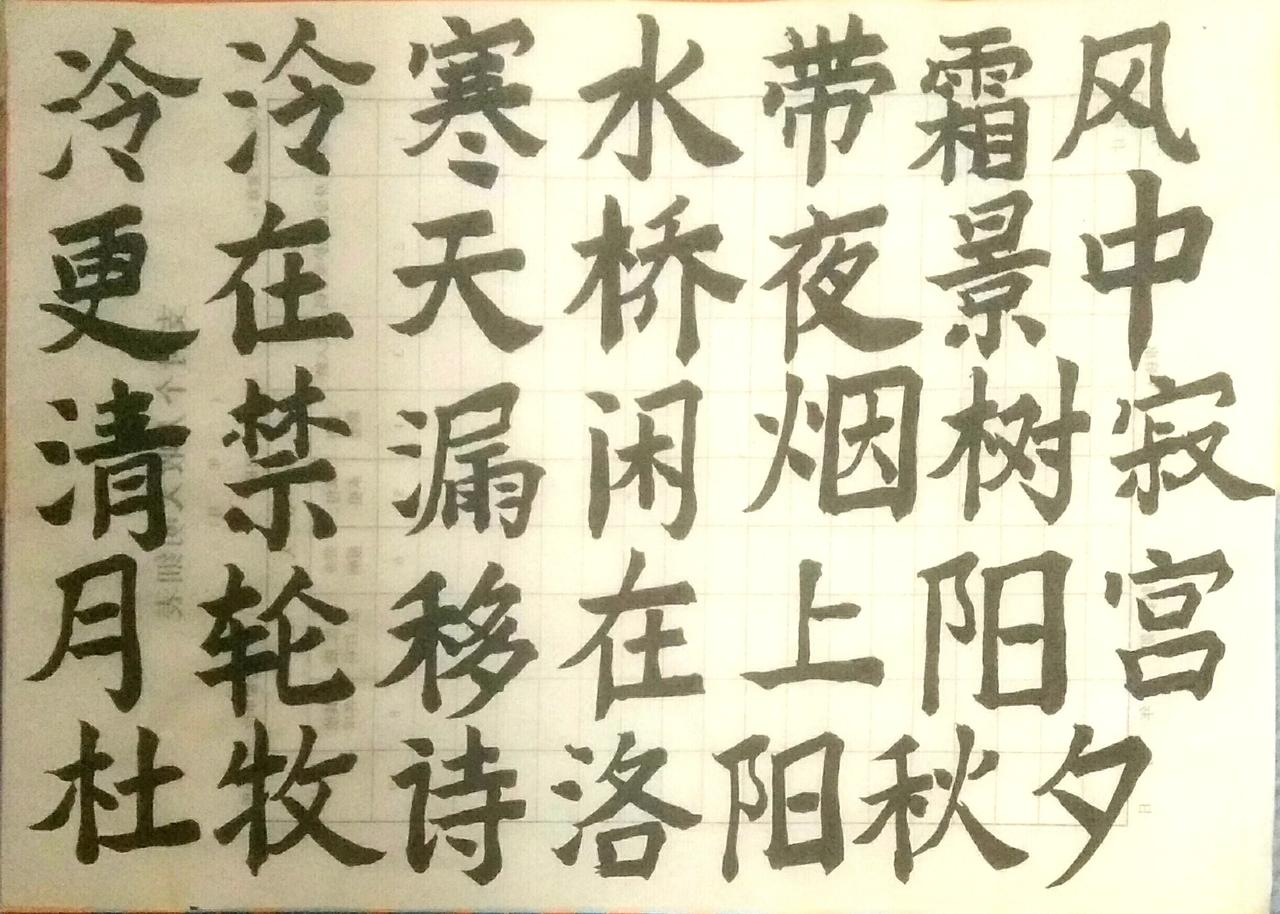 泠泠寒水带霜风
更在天桥夜景中
清禁漏闲烟树寂
月轮移在上阳宫
杜牧诗洛阳秋夕